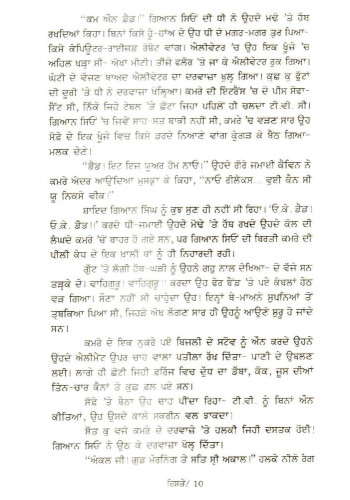 "ਕਮ ਔਨ ਡੈਡ!" ਗਿਆਨ ਸਿਓਂ ਦੀ ਧੀ ਨੇ ਉਹਦੇ ਮੋਢੇ 'ਤੇ ਹੱਥ
ਰਖਦਿਆਂ ਕਿਹਾ। ਬਿਨਾਂ ਕਿਸੇ ਹੂੰ-ਹਾਂਅ ਦੇ ਉਹ ਧੀ ਦੇ ਮਗਰ-ਮਗਰ ਤੁਰ ਪਿਆ-
ਕਿਸੇ ਕੰਪਿਊਟਰ-ਰਾਈਜ਼ਡ ਰੋਬੋਟ ਵਾਂਗ। ਐਲੀਵੇਟਰ 'ਚ ਉਹ ਇਕ ਖੂੰਜੇ 'ਚ
ਅਹਿਲ ਖੜਾ ਸੀ- ਅੱਖਾਂ ਮੀਟੀ। ਤੀਜੇ ਫਲੋਰ 'ਤੇ ਜਾ ਕੇ ਐਲੀਵੇਟਰ ਰੁਕ ਗਿਆ।
ਘੰਟੀ ਦੇ ਵੱਜਣ ਬਾਅਦ ਐਲੀਵੇਟਰ ਦਾ ਦਰਵਾਜ਼ਾ ਖੁੱਲ੍ਹ ਗਿਆ। ਕੁਛ ਕੁ ਫੁੱਟਾਂ
ਦੀ ਦੂਰੀ 'ਤੇ ਧੀ ਨੇ ਦਰਵਾਜ਼ਾ ਖੋਲ੍ਹਿਆ। ਕਮਰੇ ਦੀ ਇੰਟਰੈਂਸ 'ਚ ਦੋ ਪੀਸ ਸੋਫਾ-
ਸੈੱਟ ਸੀ, ਨਿੱਕੇ ਜਿਹੇ ਟੇਬਲ 'ਤੇ ਛੋਟਾ ਜਿਹਾ ਪਹਿਲੋਂ ਹੀ ਚਲਦਾ ਟੀ.ਵੀ. ਸੀ।
ਗਿਆਨ ਸਿਓਂ 'ਚ ਜਿਵੇਂ ਸਾਹ-ਸਤ ਬਾਕੀ ਨਹੀਂ ਸੀ, ਕਮਰੇ 'ਚ ਵੜਣ ਸਾਰ ਉਹ
ਸੋਫ਼ੇ ਦੇ ਇਕ ਖੂੰਜੇ ਵਿਚ ਕਿਸੇ ਡਰਦੇ ਨਿਆਣੇ ਵਾਂਗ ਕੁੰਗੜ ਕੇ ਬੈਠ ਗਿਆ-
ਮਲਕ ਦੇਣੇ।
"ਡੈਡ! ਇਟ ਇਜ਼ ਯੂਅਰ ਹੋਮ ਨਾਓ।" ਉਹਦੇ ਗੋਰੇ ਜਮਾਈ ਕੈਵਿਨ ਨੇ
ਕਮਰੇ ਅੰਦਰ ਆਉਂਦਿਆਂ ਮੁਸਕ੍ਰਾ ਕੇ ਕਿਹਾ, "ਨਾਓ ਰੀਲੈਕਸ... ਵੁਈ ਕੈਨ ਸੀ
ਯੂ ਨਿਕਸੇ ਵੀਕ।"
ਸ਼ਾਇਦ ਗਿਆਨ ਸਿੰਘ ਨੂੰ ਕੁਝ ਸੁਣ ਹੀ ਨਹੀਂ ਸੀ ਰਿਹਾ। 'ਓ.ਕੇ. ਡੈਡ!
ਓ.ਕੇ. ਡੈਡ!!' ਕਰਦੇ ਧੀ-ਜਮਾਈ ਉਹਦੇ ਮੋਢੇ 'ਤੇ ਹੱਥ ਰਖਦੇ ਉਹਦੇ ਕੋਲ ਦੀ
ਲੰਘਦੇ ਕਮਰੇ 'ਚੋਂ ਬਾਹਰ ਹੋ ਗਏ ਸਨ, ਪਰ ਗਿਆਨ ਸਿਓਂ ਦੀ ਬਿਰਤੀ ਕਮਰੇ ਦੀ
ਪੀਲੀ ਕੰਧ ਦੇ ਇਕ ਖ਼ਾਲੀ ਥਾਂ ਨੂੰ ਹੀ ਨਿਹਾਰਦੀ ਰਹੀ।
ਗੁੱਟ 'ਤੇ ਲੱਗੀ ਹੱਥ-ਘੜੀ ਨੂੰ ਓਹਨੇ ਗਹੁ ਨਾਲ ਦੇਖਿਆ- ਦੋ ਵੱਜੇ ਸਨ
ਤੜਕੇ ਦੇ। ਵਾਹਿਗੁਰੂ! ਵਾਹਿਗੁਰੂ!! ਕਰਦਾ ਉਹ ਫੇਰ ਬੈੱਡ 'ਤੇ ਪਏ ਕੰਬਲਾਂ ਹੇਠ
ਵੜ ਗਿਆ। ਸੌਣਾ ਨਹੀਂ ਸੀ ਚਾਹੁੰਦਾ ਉਹ। ਇਨ੍ਹਾਂ ਬੇ-ਮਾਅਨੇ ਸੁਪਨਿਆਂ ਤੋਂ
ਤ੍ਰਭਕਿਆ ਪਿਆ ਸੀ, ਜਿਹੜੇ ਅੱਖ ਲੱਗਣ ਸਾਰ ਹੀ ਉਹਨੂੰ ਆਉਣੇ ਸ਼ੁਰੂ ਹੋ ਜਾਂਦੇ
ਸਨ।
ਕਮਰੇ ਦੇ ਇਕ ਨੁਕਰੇ ਪਏ ਬਿਜਲੀ ਦੇ ਸਟੋਵ ਨੂੰ ਔਨ ਕਰਦੇ ਉਹਨੇ
ਉਹਦੇ ਐਲੀਮੇਂਟ ਉਪਰ ਚਾਹ ਵਾਲਾ ਪਤੀਲਾ ਰੱਖ ਦਿੱਤਾ- ਪਾਣੀ ਦੇ ਉਬਲਣ
ਲਈ। ਲਾਗੇ ਹੀ ਛੋਟੀ ਜਿਹੀ ਫ਼ਰਿੱਜ ਵਿਚ ਦੁੱਧ ਦਾ ਡੱਬਾ, ਕੋਕ, ਜੂਸ ਦੀਆਂ
ਤਿੰਨ-ਚਾਰ ਕੈਨਾਂ ਤੇ ਕੁਛ ਫ਼ਲ ਪਏ ਸਨ।
ਸੋਫ਼ੇ 'ਤੇ ਬੈਠਾ ਉਹ ਚਾਹ ਪੀਂਦਾ ਰਿਹਾ- ਟੀ.ਵੀ. ਨੂੰ ਬਿਨਾਂ ਔਨ
ਕੀਤਿਆਂ, ਉਹ ਉਸਦੇ ਕਾਲੇ ਸਕਰੀਨ ਵਲ ਝਾਕਦਾ।
ਸੱਤ ਕੁ ਵਜੇ ਕਮਰੇ ਦੇ ਦਰਵਾਜ਼ੇ 'ਤੇ ਹਲਕੀ ਜਿਹੀ ਦਸਤਕ ਹੋਈ।
ਗਿਆਨ ਸਿਓਂ ਨੇ ਉਠ ਕੇ ਦਰਵਾਜ਼ਾ ਖੋਲ੍ਹ ਦਿੱਤਾ।
"ਅੰਕਲ ਜੀ! ਗੁਡ ਮੌਰਨਿੰਗ ਤੇ ਸਤਿ ਸ੍ਰੀ ਅਕਾਲ।" ਹਲਕੇ ਨੀਲੇ ਰੰਗ
ਰਿਸ਼ਤੇ/ 10